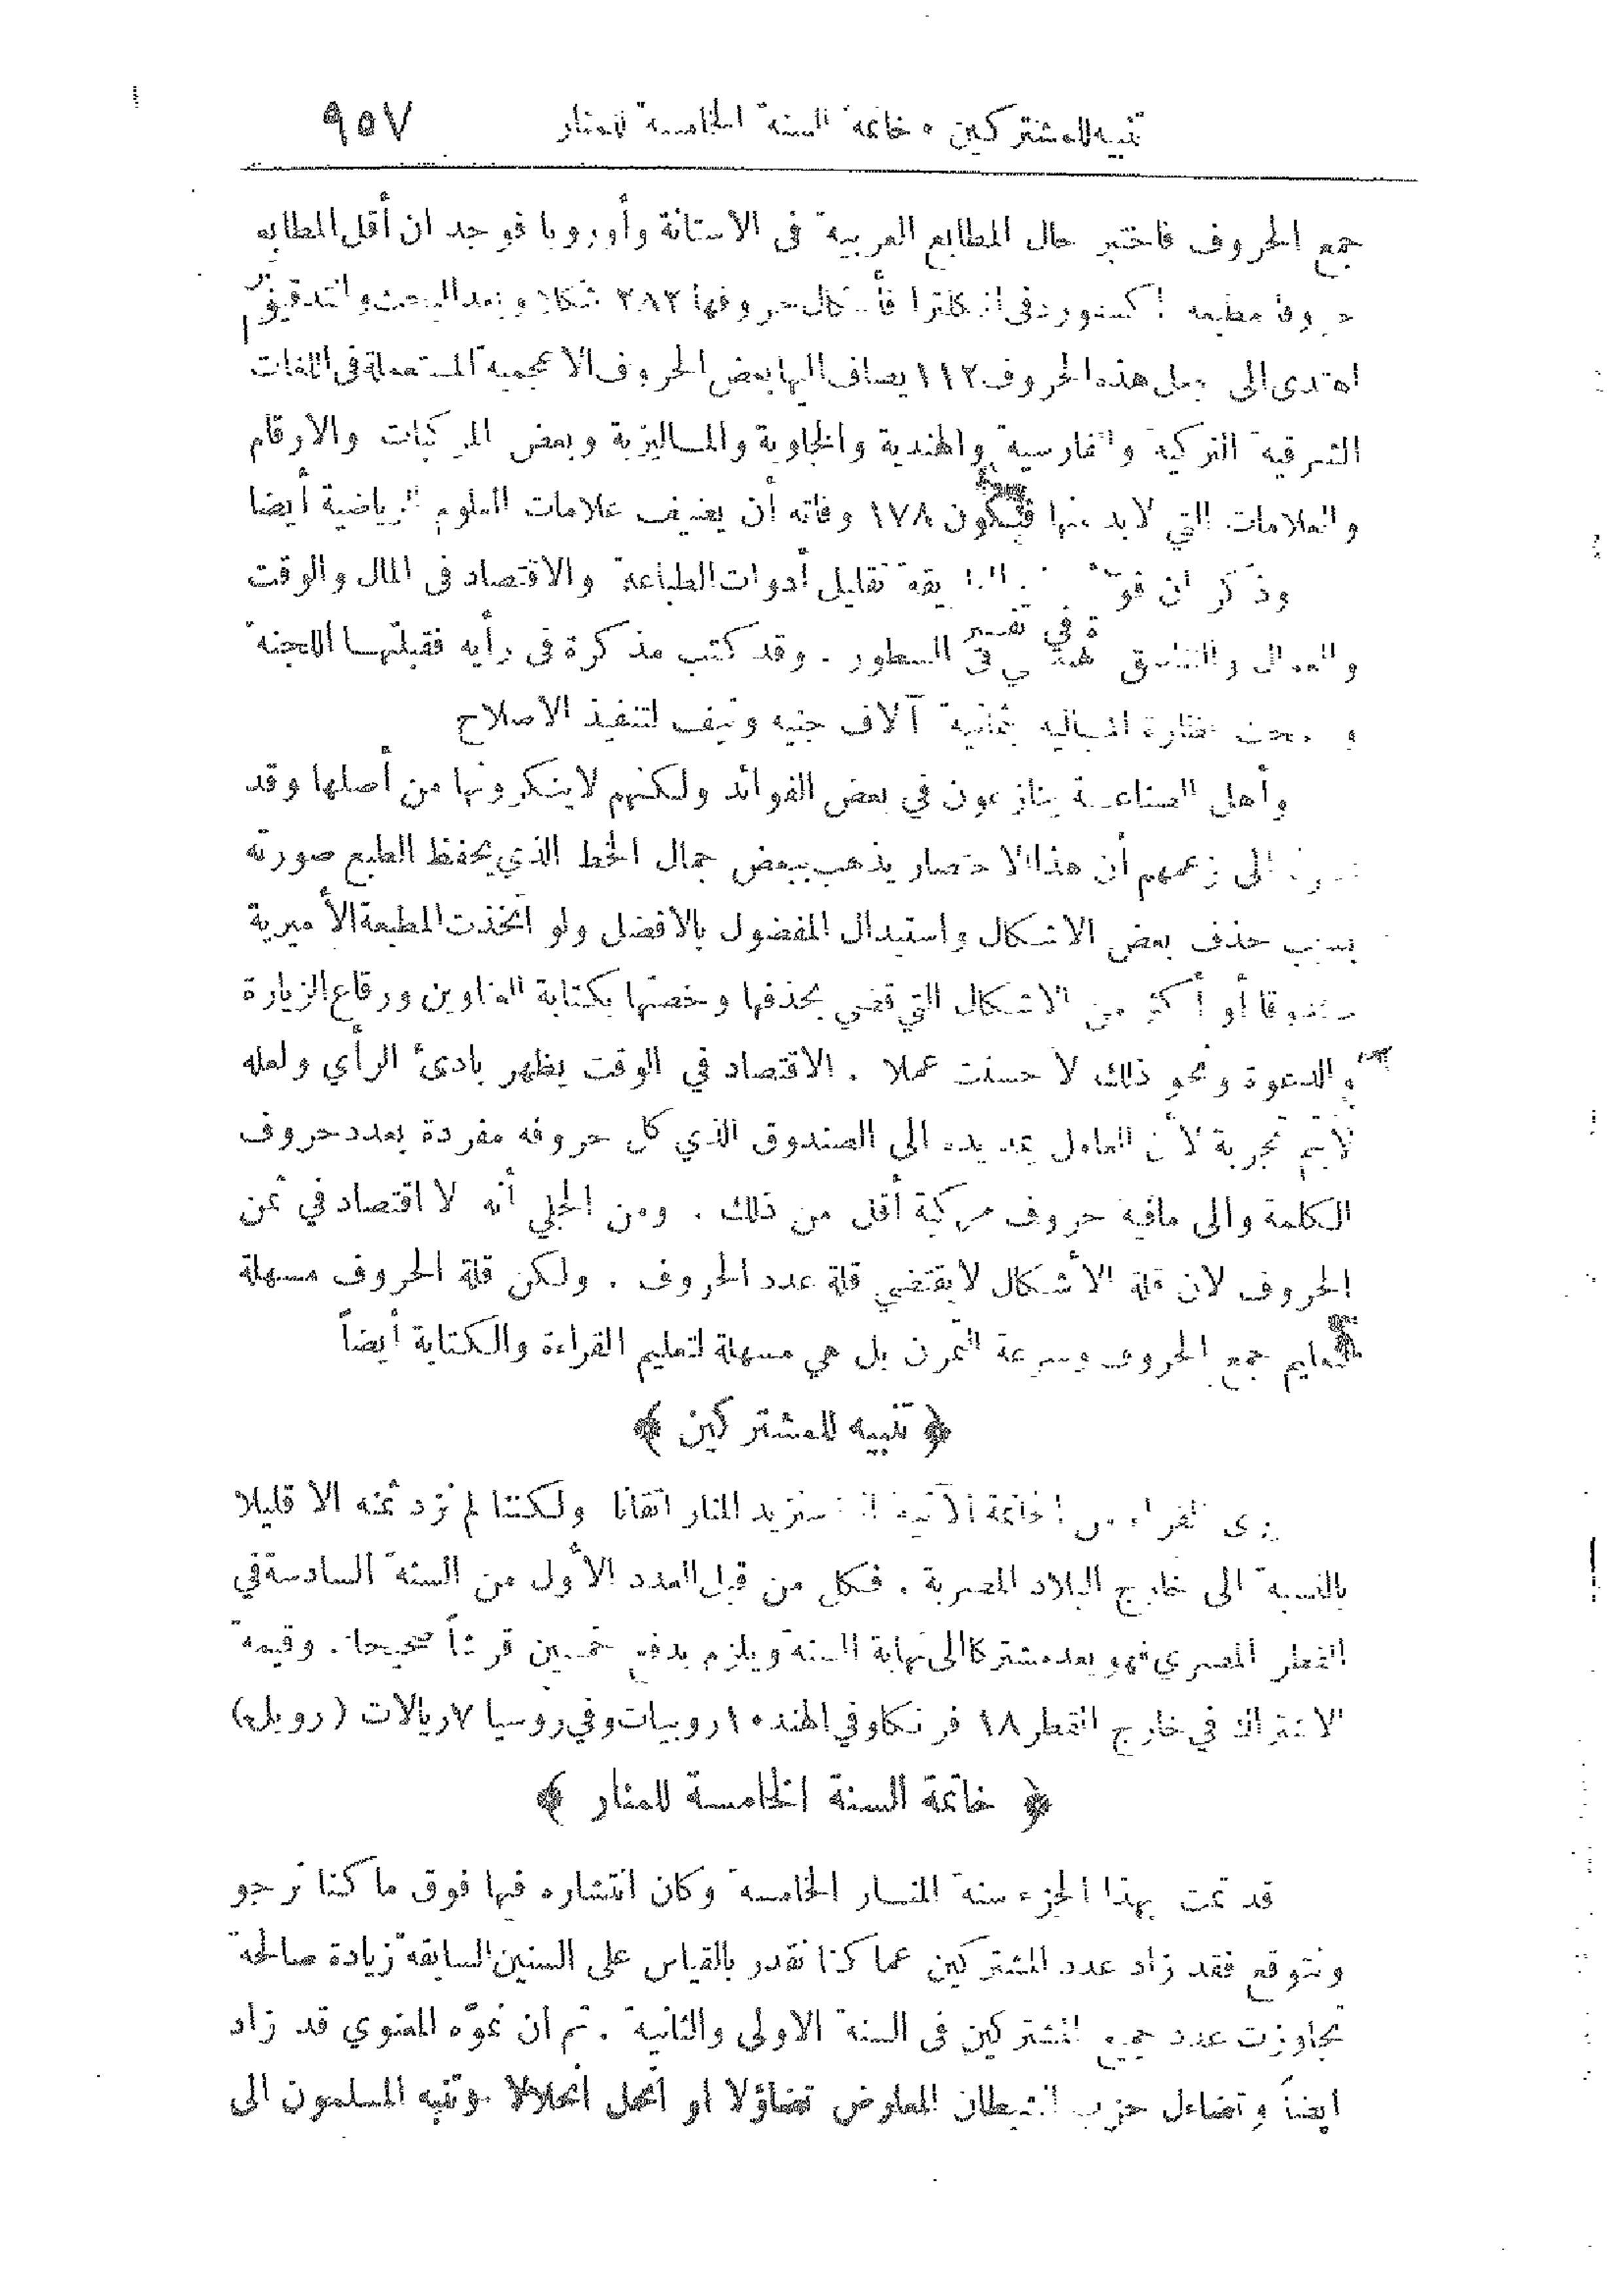 تنبيه للمشتركين • خاتمة السنة الخامسة للمنار ٩٥٧
جمع الحروف فاختبر حال المطابع العربية فى الاستانة وأوروبا فوجد ان أقل المطابع
حروفا مطبعة اكسفورد فى انكلترا فأشكال حروفها ٢٨٢ شكلا وبعد البحث والتدقيق
اهتدى الى جعل هذه الحروف ١١٢ يضاف اليها بعض الحروف الاعجمية المستعملة فى اللغات
الشرقية التركية والفارسية والهندية والجاوية والماليزية وبعض المركبات والارقام
والعلامات التي لابد منها فتكون ١٧٨ وفاته أن يضيف علامات العلوم الرياضية أيضا
وذكر ان تقليل أدوات الطباعة والاقتصاد فى المال والوقت
والعمال والتناسق فى السطور . وقد كتب مذكرة فى رأيه فقبلتها اللجنة
نظارة المالية بثمانية آلاف جنيه ونيف لتنفيذ الاصلاح
وأهل الصناعة ينازعون في بعض الفوائد ولكنهم لاينكرونها من أصلها وقد
الى زعمهم أن هذا الاختصار يذهب ببعض جمال الخط الذي يحفظ الطبع صورته
بسبب حذف بعض الاشكال واستبدال المفضول بالافضل ولو اتخذت المطبعة الأميرية
صندوقا أو أكثر من الاشكال التي قضي بحذفها وخصتها بكتابة العناوين ورقاع الزيارة
والدعوة ونحو ذلك لاحسنت عملا . الاقتصاد في الوقت يظهر بادئ الرأي ولعله
لايتم تجربة لأن العامل يمد يده الى الصندوق الذي كل حروفه مفردة بعدد حروف
الكلمة والى مافيه حروف مركبة أقل من ذلك . ومن الجلي أنه لا اقتصاد في ثمن
الحروف لان قلة الأشكال لايقتضي قلة عدد الحروف . ولكن قلة الحروف مسهلة
لتعليم جمع الحروف وسرعة التمرن بل هي مسهلة لتعليم القراءة والكتابة أيضاً
﴿ تنبيه للمشتركين ﴾
يرى القراء من الخاتمة الآتية اننا سنزيد المنار اتقانا ولكننا لم نزد ثمنه الا قليلا
بالنسبة الى خارج البلاد المصرية . فكل من قبل العدد الأول من السنة السادسة في
القطر المصري فهو يعد مشتركا الى نهاية السنة ويلزم بدفع خمسين قرشاً صحيحا . وقيمة
الاشتراك في خارج القطر ١٨ فرنكا وفي الهند ١٠ روبيات وفي روسيا ٧ ريالات (روبل)
﴿ خاتمة السنة الخامسة للمنار ﴾
قد تمت بهذا الجزء سنة المنار الخامسة وكان انتشاره فيها فوق ما كنا نرجو
ونتوقع فقد زاد عدد المشتركين عما كنا نقدر بالقياس على السنين السابقة زيادة صالحة
تجاوزت عدد جميع المشتركين فى السنة الاولى والثانية . ثم ان نموّه المعنوي قد زاد
ايضاً وتضاءل حزب الشيطان المعارض تضاؤلا او انحل انحلالا وتنبه المسلمون الى